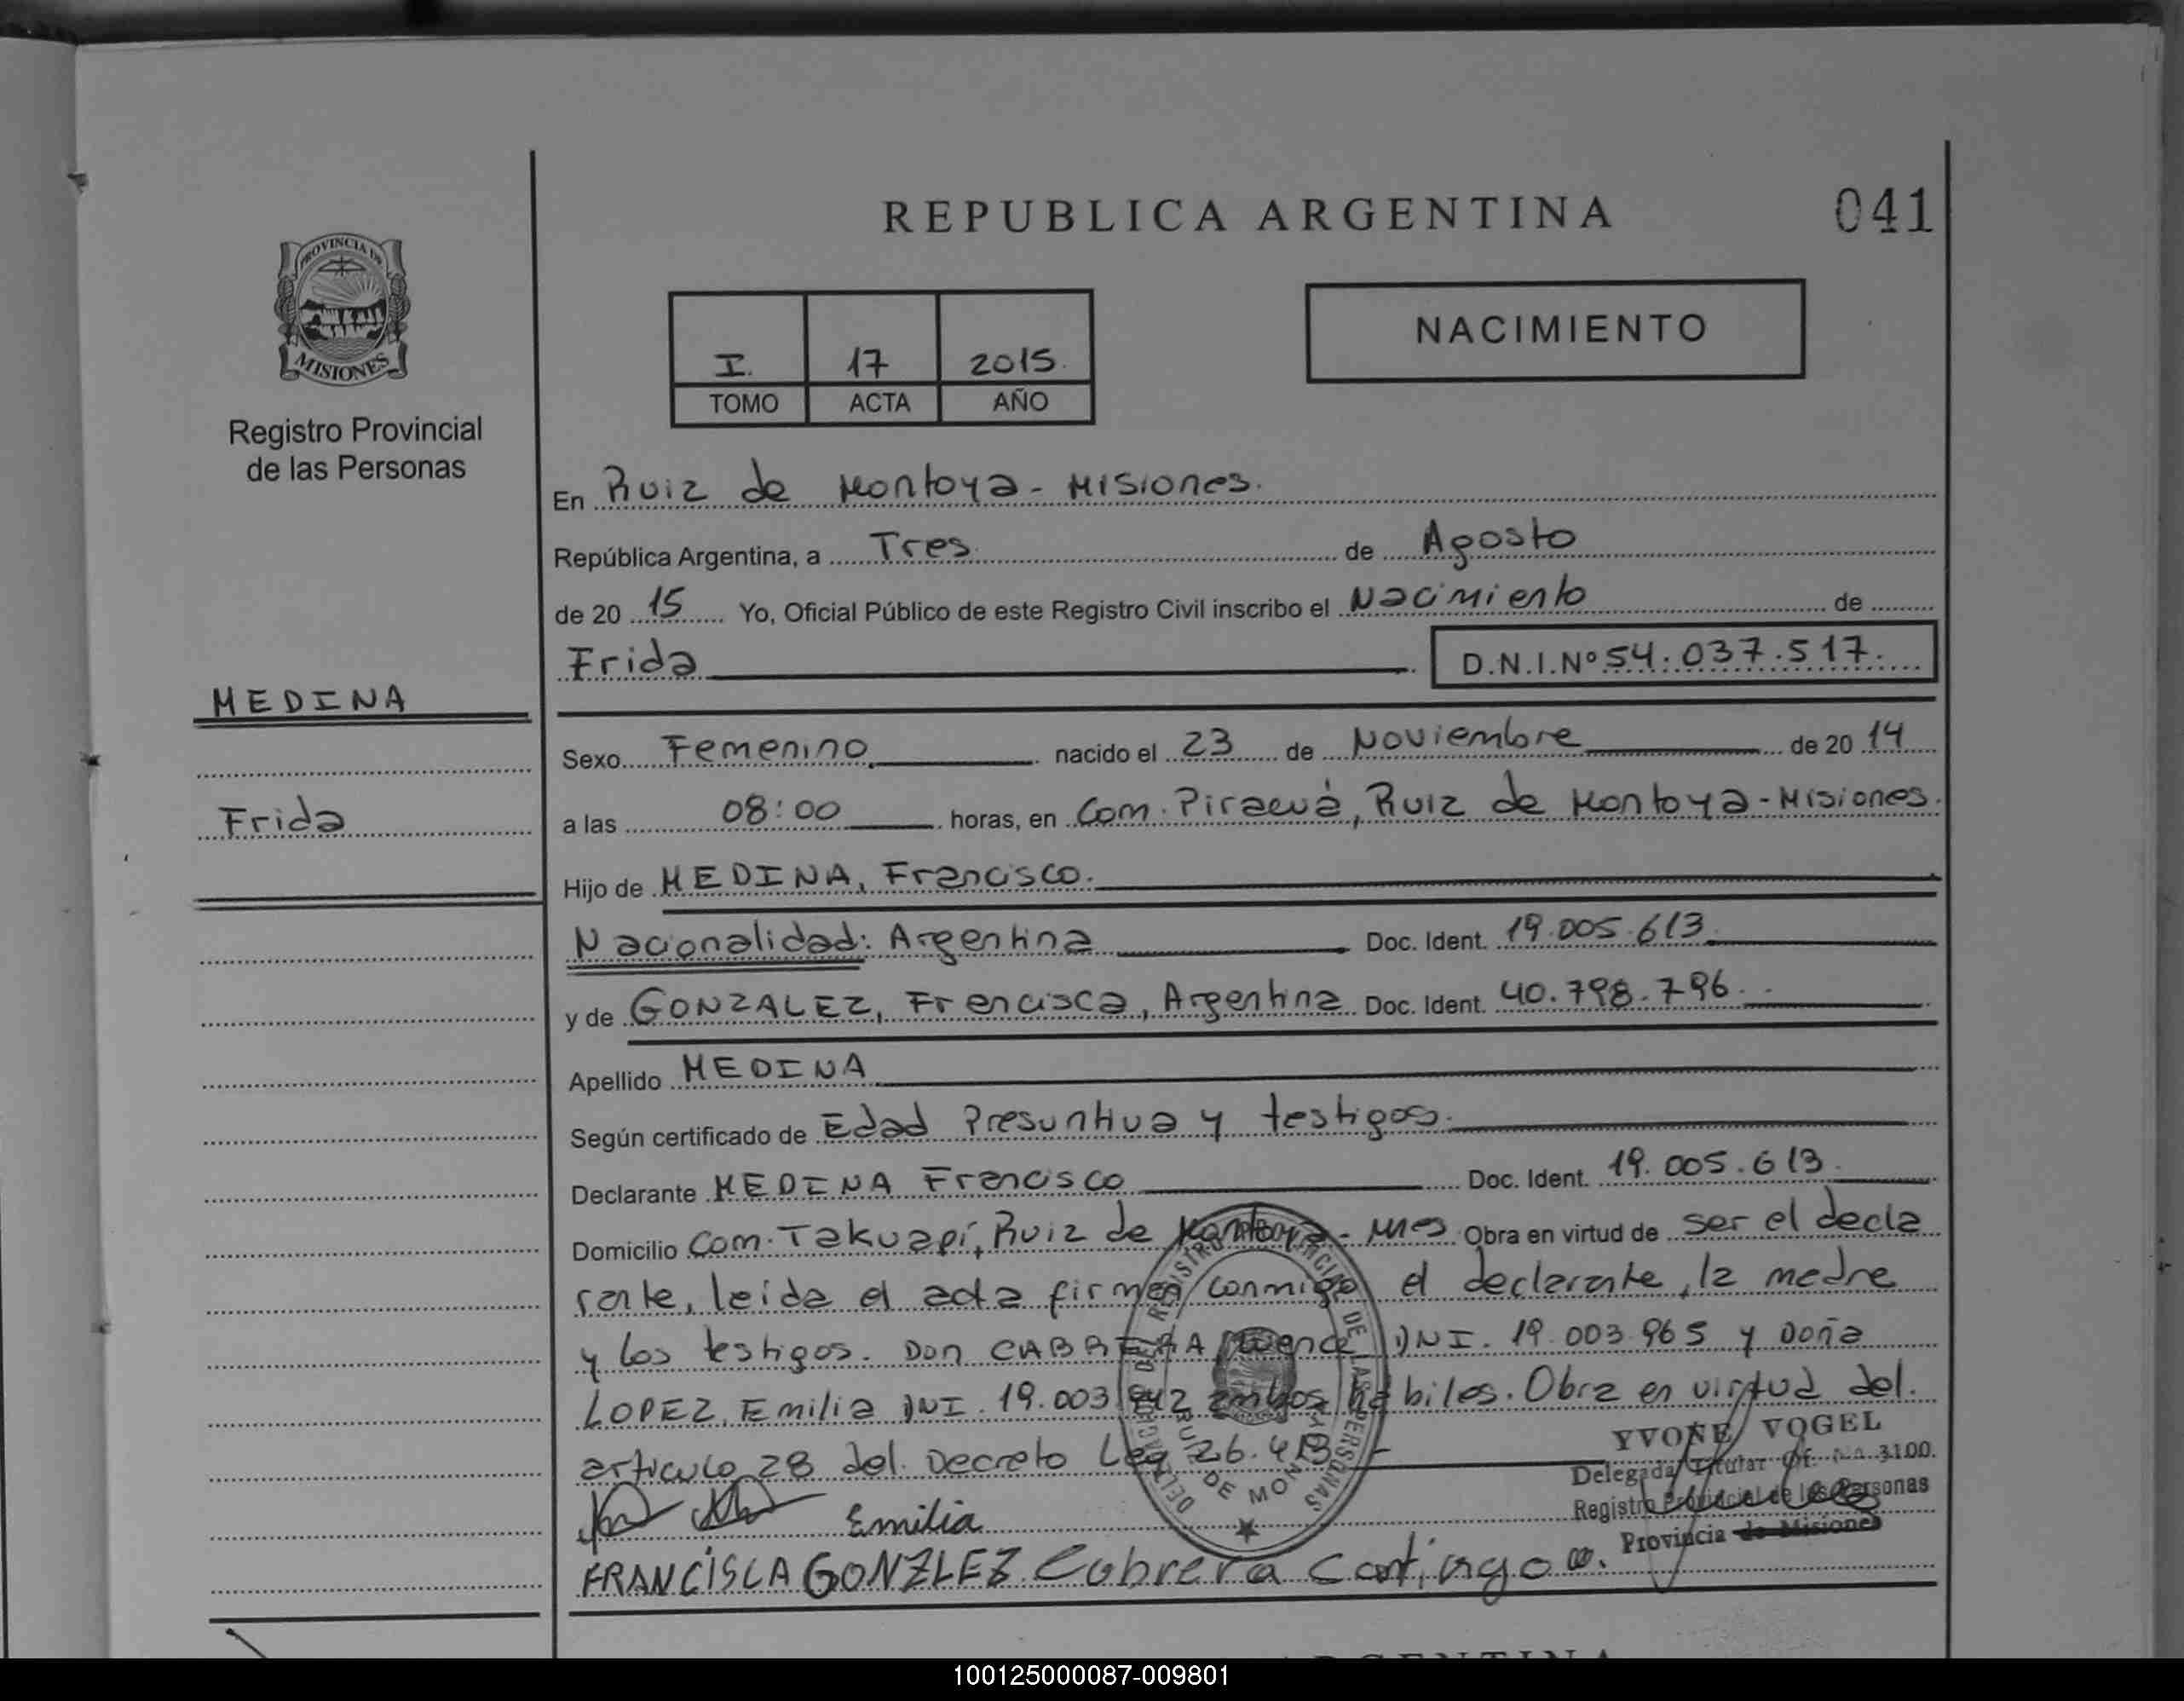 REPUBLICA ARGENTINA
041
PROVINCIA DE
MISIONES
Registro Provincial
de las Personas
I. 17 2015.
TOMO ACTA AÑO
NACIMIENTO
En Ruiz de Montoya - Misiones.
República Argentina, a Tres de Agosto
de 20 15 Yo, Oficial Público de este Registro Civil inscribo el Nacimiento de
Frida D.N.I.Nº 54.037.517.
MEDINA
Frida
Sexo Femenino nacido el 23 de Noviembre de 20 14
a las 08:00 horas, en Com. Ruiz de Montoya - Misiones.
Hijo de MEDINA, Francisco.
Nacionalidad: Argentina Doc. Ident. 19.005.613
y de GONZALEZ, Francisca, Argentina Doc. Ident. 40.798.796.
Apellido MEDINA
Según certificado de Edad Presuntiva y testigos.
Declarante MEDINA Francisco Doc. Ident. 19.005.613
Domicilio Com. Takuapí, Ruiz de Montoya - Mnes Obra en virtud de ser el decla
rante, leída el acta firman conmigo el declarante, la madre
y los testigos. Don CABRERA DNI. 19.003.965 y Doña
LOPEZ, Emilia DNI. 19.003 ambos hábiles. Obra en virtud del.
articulo 28 del. Decreto Ley 26.413
YVONE VOGEL
Delegada Titular Of. 3100.
Registro Provincial de las Personas
Provincia de Misiones
Emilia
FRANCISCA GONZLEZ Cabrera
REGISTRO PROVINCIAL DE LAS PERSONAS
RUIZ DE MONTOYA
100125000087-009801